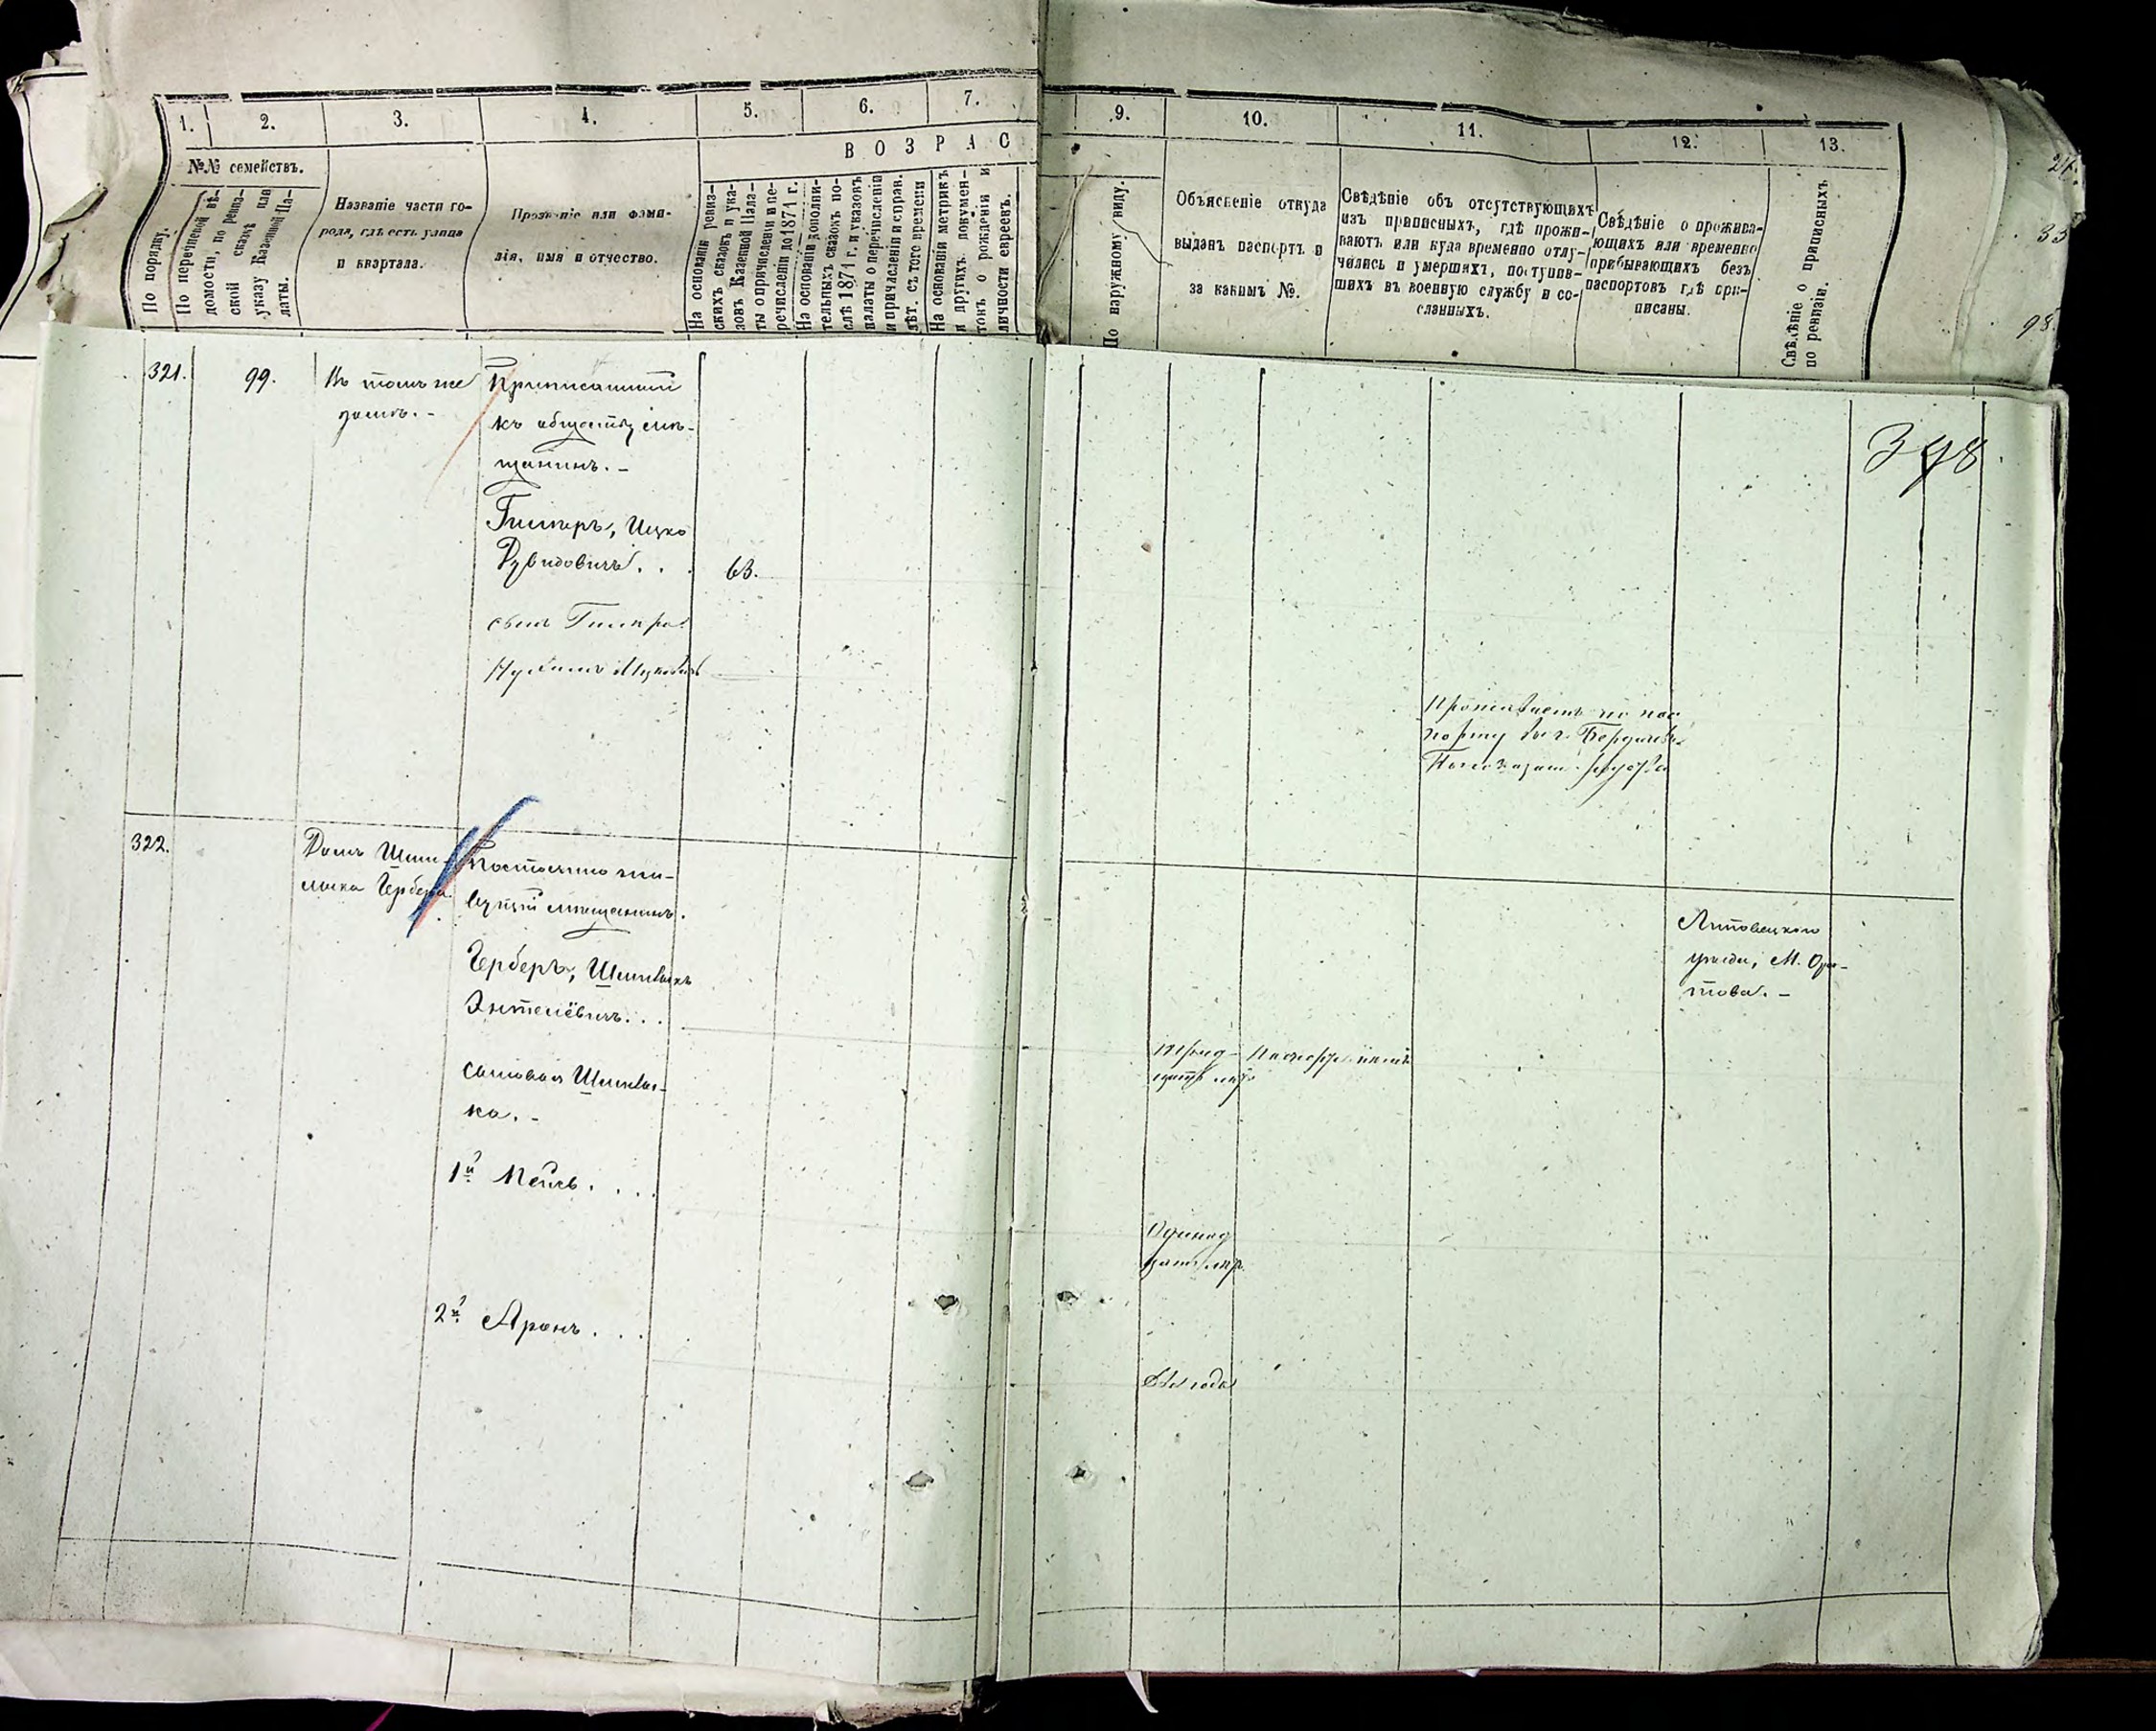 1.
2.
3.
4.
5.
6.
7.
9.
10.
11.
12.
13.
ВОЗРАС
№№ семействъ.
По порядку.
По перечневой вѣ-
домости, по ревиз-
ской сказкѣ или
указу Казенной Па-
латы.
Названіе части го-
рода, гдѣ есть улица
и квартала.
Прозваніе или фами-
лія, имя и отчество.
На основаніи ревиз-
скихъ сказокъ и ука-
зовъ Казенной Пала-
ты о причисленіи и пе-
речисленіи до 1871 г.
На основаніи дополни-
тельныхъ сказокъ по-
слѣ 1871 г. и указовъ
палаты о перечисленіи
и причисленіи и справ.
лѣт. съ того времени
На основаніи метрикъ
и другихъ докумен-
товъ о рожденіи и
личности евреевъ.
По наружному виду.
Объясненіе откуда
выданъ паспортъ и
за какимъ №.
Свѣдѣніе объ отсутствующихъ
изъ приписныхъ, гдѣ прожи-
ваютъ или куда временно отлу-
чились и умершихъ, поступив-
шихъ въ военную службу и со-
сланныхъ.
Свѣдѣніе о прожива-
ющихъ или временно
прибывающихъ безъ
паспортовъ гдѣ при-
писаны.
Свѣдѣніе о приписныхъ
по ревизіи.
33
98.
321.
99.
Въ томъ же
домѣ. -
Приписанный
къ обществу мѣ-
щанинъ. -
Ицко
Дувидовичъ . .
63.
сынъ
Ицковичъ
Проживаетъ по пас
порту въ г. Бердичевѣ
398
322.
Домъ Шми-
лыка Гербера
Постоянно жи-
вущій мѣщанинъ.
Герберъ, Шмилыкъ
. . .
сыновья Шмилы-
ка. -
1й . . .
2й Аронъ. . .
Липовецкаго
уѣзда, М. Ора-
това. -
Тридцать лѣтъ
Одинад
цать лѣтъ
Два года